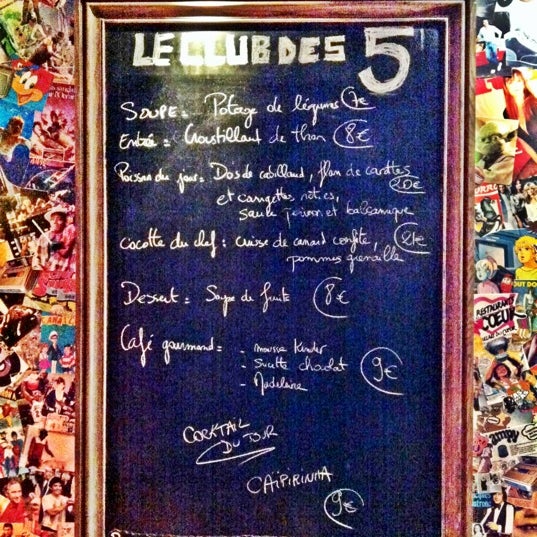 LE CLUB DES 5
SOUPE = Potage de légumes 7€
Entrée = Croustillant de thon 8€
Poisson du jour = Dos de cabillaud, flan de carottes
et courgettes roties, 20€
sauce poivron et balsamique
Cocotte du chef : cuisse de canard confite, 21€
pommes grenaille
Dessert = Soupe de fruits 8€
Café gourmand = - mousse Kinder
- Sucette chocolat 9€
- Madeleine
COCKTAIL
DU JOUR
CAÏPIRINHA
9€
RESTAURANTS
COEUR